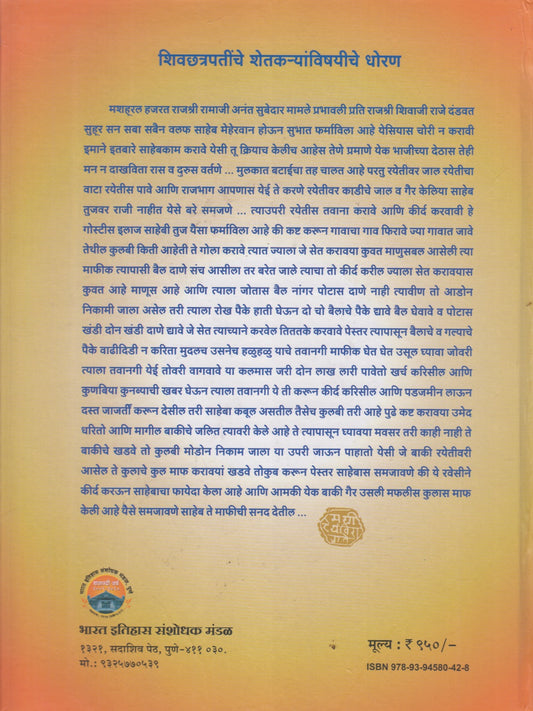 शिवछत्रपतींचे शेतकऱ्यांविषयीचे धोरण
मशहरल हजरत राजश्री रामाजी अनंत सुबेदार मामले प्रभावली प्रति राजश्री शिवाजी राजे दंडवत
सुहूर सन सबा सबैन वलफ साहेब मेहेरवान होऊन सुभात फर्माविला आहे येसियास चोरी न करावी
इमाने इतबारे साहेबकाम करावे येसी तू क्रियाच केलीच आहेस तेणे प्रमाणे येक भाजीच्या देठास तेही
मन न दाखविता रास व दुरुस वर्तणे ... मुलकात बटाईचा तह चालत आहे परतु रयेतीवर जाल रयेतीचा
वाटा रयेतीस पावे आणि राजभाग आपणास येई ते करणे रयेतीवर काडीचे जाल व गैर केलिया साहेब
तुजवर राजी नाहीत येसे बरे समजणे ... त्याउपरी रयेतीस तवाना करावे आणि कीर्द करवावी हे
गोस्टीस इलाज साहेबी तुज पैसा फर्माविला आहे की कष्ट करून गावाचा गाव फिरावे ज्या गावात जावे
तेथील कुलबी किती आहेती ते गोला करावे त्यात ज्याला जे सेत करावया कुवत माणुसबल आसेली त्या
माफीक त्यापासी बैल दाणे संच आसीला तर बरेत जाले त्याचा तो कीर्द करील ज्याला सेत करावयास
कुवत आहे माणूस आहे आणि त्याला जोतास बैल नांगर पोटास दाणे नाही त्यावीण तो आडोन
निकामी जाला असेल तरी त्याला रोख पैके हाती घेऊन दो चो बैलाचे पैके द्यावे बैल घेवावे व पोटास
खंडी दोन खंडी दाणे द्यावे जे सेत त्याच्याने करवेल तिततके करवावे पेस्तर त्यापासून बैलाचे व गल्याचे
पैके वाढीदिडी न करिता मुदलच उसनेच हळुहळु याचे तवानगी माफीक घेत घेत उसूल घ्यावा जोवरी
त्याला तवानगी येई तोवरी वागवावे या कलमास जरी दोन लाख लारी पावेतो खर्च करिसील आणि
कुणबिया कुनब्याची खबर घेऊन त्याला तवानगी पे ती करून कीर्द करिसील आणि पडजमीन लाऊन
दस्त जाजर्ती करून देसील तरी साहेबा कबूल असतील तैसेच कुलबी तरी आहे पुढे कष्ट करावया उमेद
धरितो आणि मागील बाकीचे जलित त्यावरी केले आहे ते त्यापासून घ्यावया मवसर तरी काही नाही ते
बाकीचे खडवे तो कुलबी मोडोन निकाम जाला या उपरी जाऊन पाहातो येसी जे बाकी रयेतीवरी
आसेल ते कुलाचे कुल माफ करावयां खडवे तोकुब करून पेस्तर साहेबास समजावणे की ये रवेसीने
कीर्द करऊन साहेबाचा फायेदा केला आहे आणि आमकी येक बाकी गैर उसली मफलीस कुलास माफ
केली आहे पैसे समजावणे साहेब ते माफीची सनद देतील ...
भारत इतिहास संशोधक मंडळ
१३२१, सदाशिव पेठ, पुणे-४११ ०३०.
मो.: ९३२५७७०५३९
मूल्य : ₹ ९५०/-
ISBN 978-93-94580-42-8